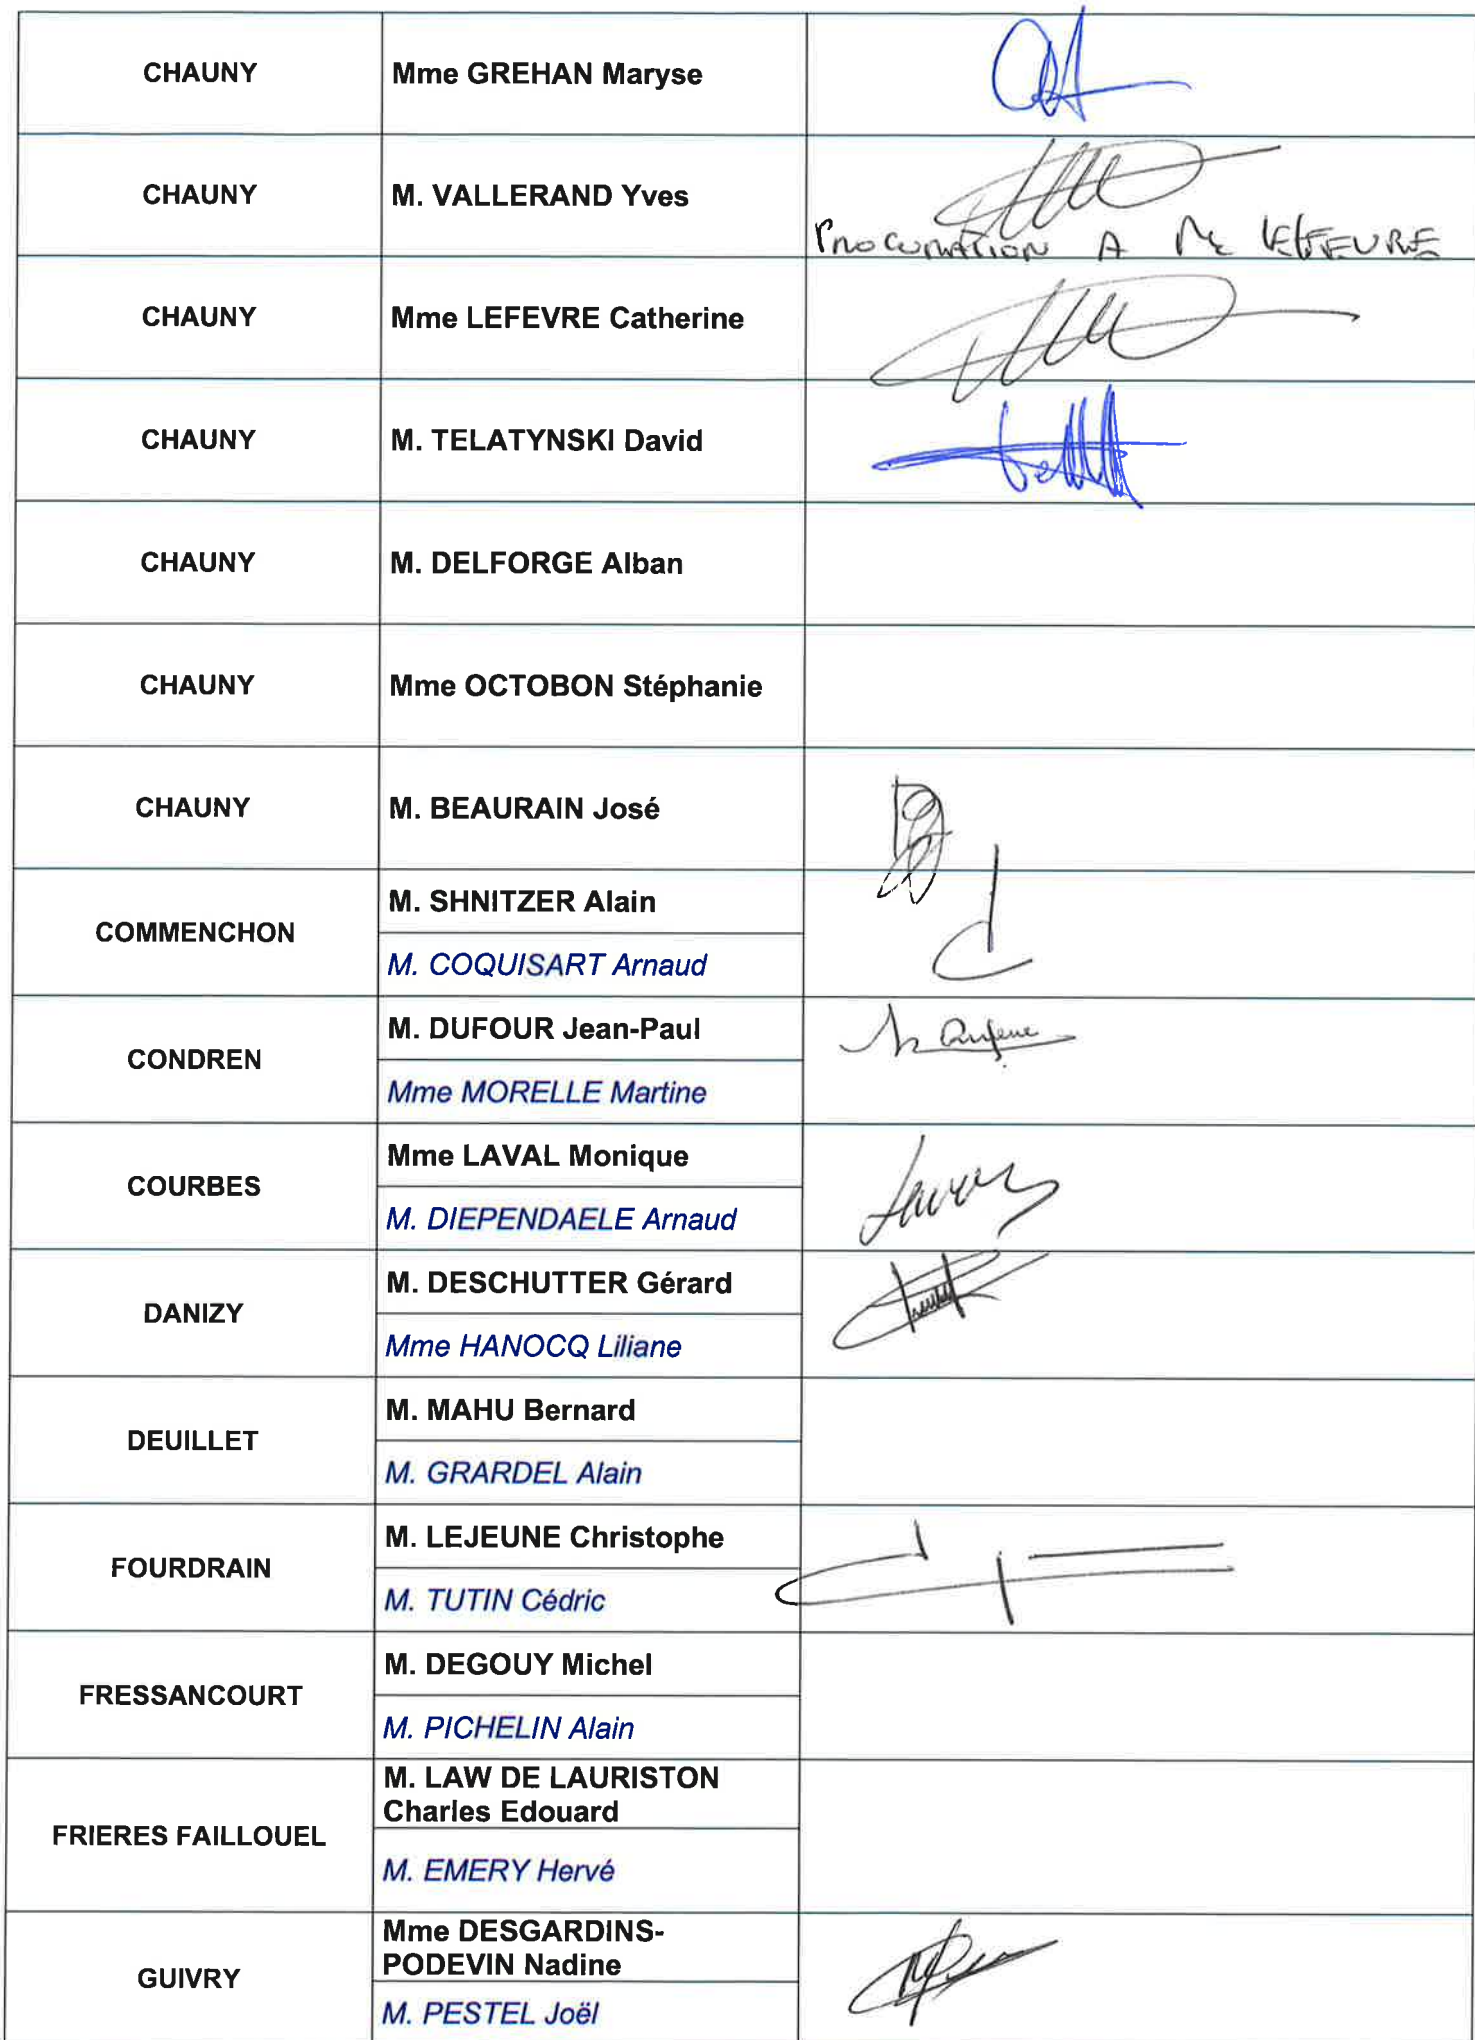 CHAUNY
Mme GREHAN Maryse
CHAUNY
M. VALLERAND Yves
PROCURATION A Me LEFEVRE
CHAUNY
Mme LEFEVRE Catherine
CHAUNY
M. TELATYNSKI David
CHAUNY
M. DELFORGE Alban
CHAUNY
Mme OCTOBON Stéphanie
CHAUNY
M. BEAURAIN José
COMMENCHON
M. SHNITZER Alain
M. COQUISART Arnaud
CONDREN
M. DUFOUR Jean-Paul
Mme MORELLE Martine
COURBES
Mme LAVAL Monique
M. DIEPENDAELE Arnaud
DANIZY
M. DESCHUTTER Gérard
Mme HANOCQ Liliane
DEUILLET
M. MAHU Bernard
M. GRARDEL Alain
FOURDRAIN
M. LEJEUNE Christophe
M. TUTIN Cédric
FRESSANCOURT
M. DEGOUY Michel
M. PICHELIN Alain
FRIERES FAILLOUEL
M. LAW DE LAURISTON
Charles Edouard
M. EMERY Hervé
GUIVRY
Mme DESGARDINS-
PODEVIN Nadine
M. PESTEL Joël